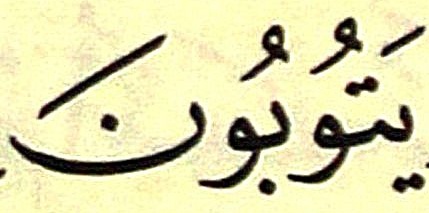 يَتُوبُونَ